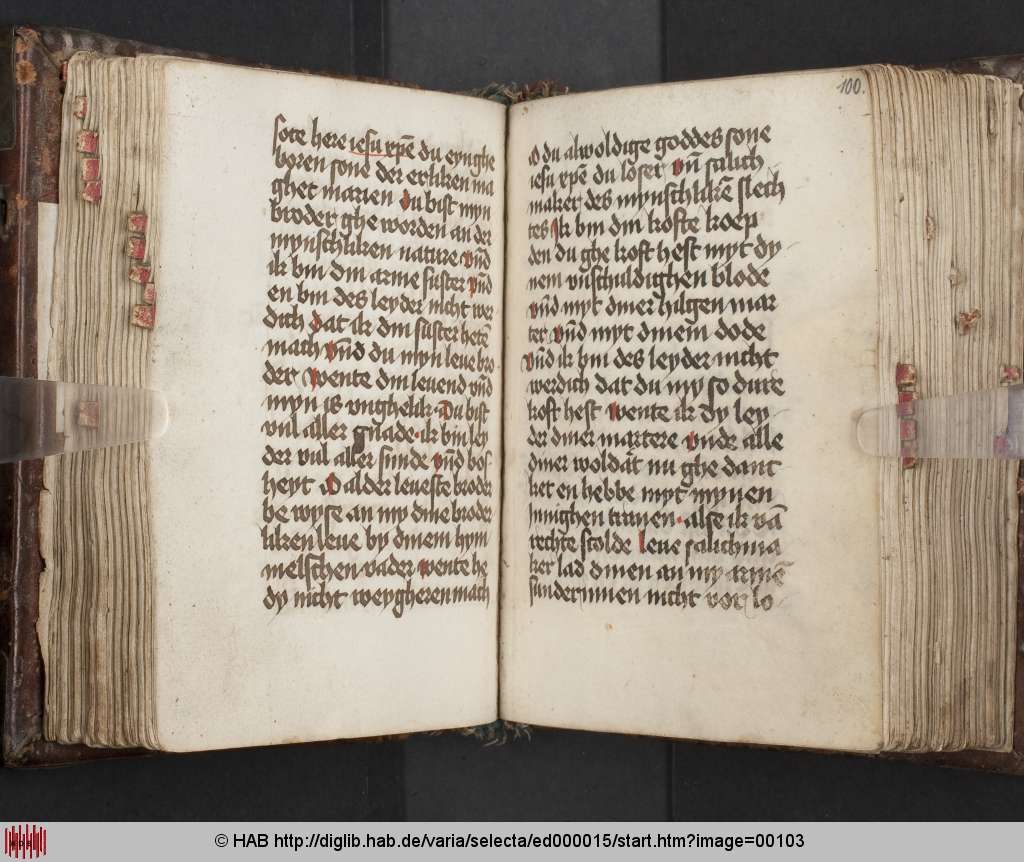 sote here iesu xpē du eynghe
boren sone der erliken ma
ghet marien du bist myn
broder ghe worden an der
mynschliken nature vnd
ik bin din arme suster vnd
en bin des leyder nicht wer
dich dat ik din suster hetē
mach vnd du myn leue bro
der wente din leuend vnd
myn is vnghelik Du bist
vul aller gnade ik bin ley
der vul aller sunde vnd bos
heyt O alder leueste broder
be wyse an my dine broder
liken leue by dinem hym
melschen vader wente he
dy nicht weygheren mach
100.
O du alwoldige goddes sone
iesu xpē du loser vn̄ salich
maker des mynschlikē slech
tes Ik bin din kofte koep
den du ghe koft hest myt dy
nem vnschuldighen blode
vnd myt diner hilgen mar
ter vnd myt dinem dode
vnd ik bin des leyder nicht
werdich dat du my so dure
koft hest wente ik dy ley
der diner martere vnde alle
diner woldāt nu ghe dant
ket en hebbe myt mynen
Innighen truwen alse ik vā
rechte scolde leue salichma
ker lad dinen an my armē
sunderinnen nicht vor lo
© HAB http://diglib.hab.de/varia/selecta/ed000015/start.htm?image=00103